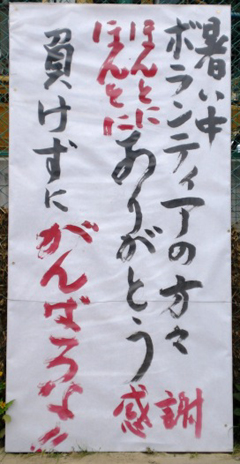 暑い中
ボランティアの方々
ほんとに
ほんとに
ありがとう
感謝
負けずに
がんばろな!!